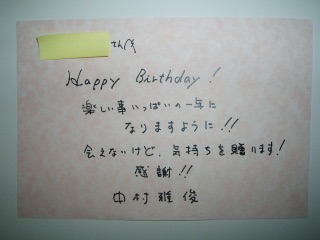 さんへ
Happy Birthday!
楽しい事いっぱいの一年に
なりますように!!
会えないけど、気持ちを贈ります!
感謝!!
中村雅俊